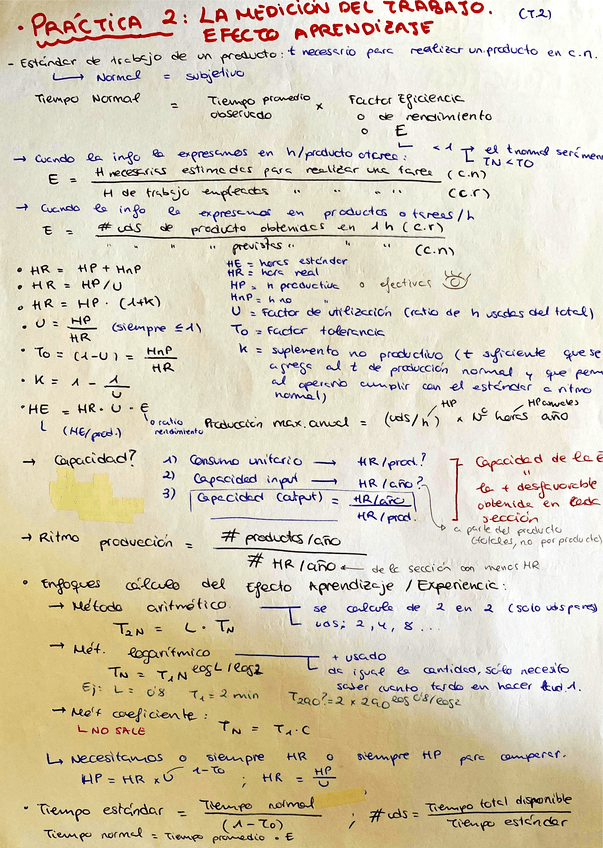 · PRÁCTICA 2: LA MEDICIÓN DEL TRABAJO. (T.2)
EFECTO APRENDIZAJE
- Estándar de trabajo de un producto: t necesario para realizar un producto en c.n.
↳ Normal = subjetivo
Tiempo Normal = Tiempo promedio observado × Factor Eficiencia
o de rendimiento
o E
↳ <1 → el t normal será men
TN < TO
→ Cuando la info la expresamos en h/producto o tarea:
E = H necesarias estimadas para realizar una tarea (c.n)
H de trabajo empleadas " " " " (c.r)
→ Cuando la info la expresamos en productos o tareas/h
E = # uds de producto obtenidas en 1h (c.r)
" " " previstas " " " (c.n)
• HR = HP + HnP
• HR = HP/U
• HR = HP · (1+k)
• U = HP/HR (siempre ≤ 1)
• To = (1-U) = HnP/HR
• K = 1 - 1/U
• HE = HR · U · E
↳ (HE/prod.) ↳ o ratio rendimiento
HE = horas estándar
HR = hora real
HP = h productiva o efectivas
HnP = h no "
U = Factor de utilización (ratio de h usadas del total)
To = Factor tolerancia
k = suplemento no productivo (t suficiente que se
agrega al t de producción normal y que perm
al operario cumplir con el estándar a ritmo
normal)
Producción max. anual = (uds/h) HP × Nº horas año HP anuales
→ Capacidad? 1) Consumo unitario → HR/prod.?
2) Capacidad input → HR/año?
3) Capacidad (output) = HR/año
HR/prod.
Capacidad de la E
"
la + desfavorable
obtenida en cada
sección
↳ a parte del producto
(totales, no por producto)
→ Ritmo producción = # productos/año
# HR/año ← de la sección con menos HR
• Enfoques cálculo del Efecto Aprendizaje / Experiencia:
→ Método aritmético. se calcula de 2 en 2 (solo uds pares)
T2N = L · TN uds: 2, 4, 8 ...
→ Mét. logarítmico + usado
TN = T1 N^log L/log2 da igual la cantidad, sólo necesito
saber cuanto tardo en hacer la ud 1.
Ej: L = 0'8 T1 = 2 min T290? = 2 × 290^log 0'8/log2
→ Mét coeficiente: TN = T1 · C
↳ NO SALE
↳ Necesitamos o siempre HR o siempre HP para comparar.
HP = HR × U 1-To ; HR = HP/U
• Tiempo estándar = Tiempo normal / (1-To) ; # uds = Tiempo total disponible / Tiempo estándar
Tiempo normal = Tiempo promedio · E